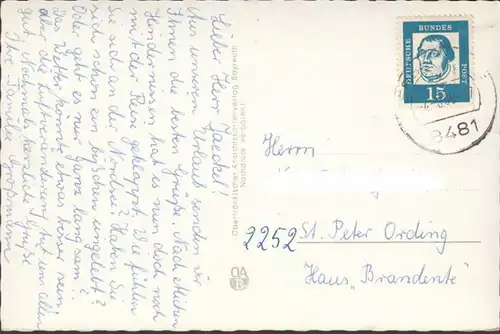 Lieber Herr Jaeckel!
Aus unserem Urlaub senden wir
Ihnen die besten Grüße. Nach etlichen
Hindernissen hat es nun doch noch
mit der Reise geklappt. Wie fühlen
Sie sich an der Nordsee? Haben Sie
sich schon ein bißchen eingelebt?
Oder geht es nur ganz langsam?
Das Wetter könnte etwas besser sein
aber die Luftveränderung tut dem allem
gut. Nochmals herzliche Grüße
Ihre Familie
Oberfränkischer Ansichtskartenverlag Bouvier
Nachdruck verboten!
DEUTSCHE BUNDES POST
15
8481
Herrn
2252 St. Peter Ording
Haus „Brandente"